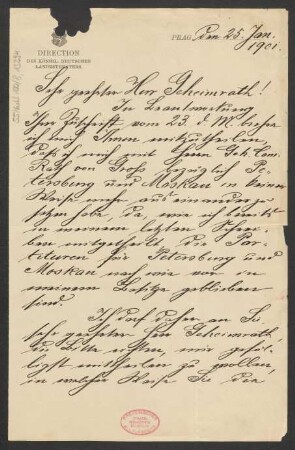 DIRECTION
DES KÖNIGL. DEUTSCHEN
LANDESTHEATERS.
PRAG, den 25. Jan.
1901.
Sehr geehrter Herr Geheimrath!
In Beantwortung
Ihrer Zuschrift vom 23. d. M. beehre
ich mich Ihnen mitzutheilen,
daß ich mich mit Herrn Geh. Com.
Rath von Groß bezüglich Pe-
tersburg und Moskau in keiner
Weise mehr auseinander zu
setzen habe, da, wie ich bereits
in meinem letzten Schrei-
ben mitgetheilt, die Par-
tituren für Petersburg und
Moskau nach wie vor in
meinem Besitze geblieben
sind.
Ich darf daher an Sie
sehr geehrter Herr Geheimrath,
die Bitte richten, mir gefäl-
ligst mittheilen zu wollen,
in welcher Weise Sie die